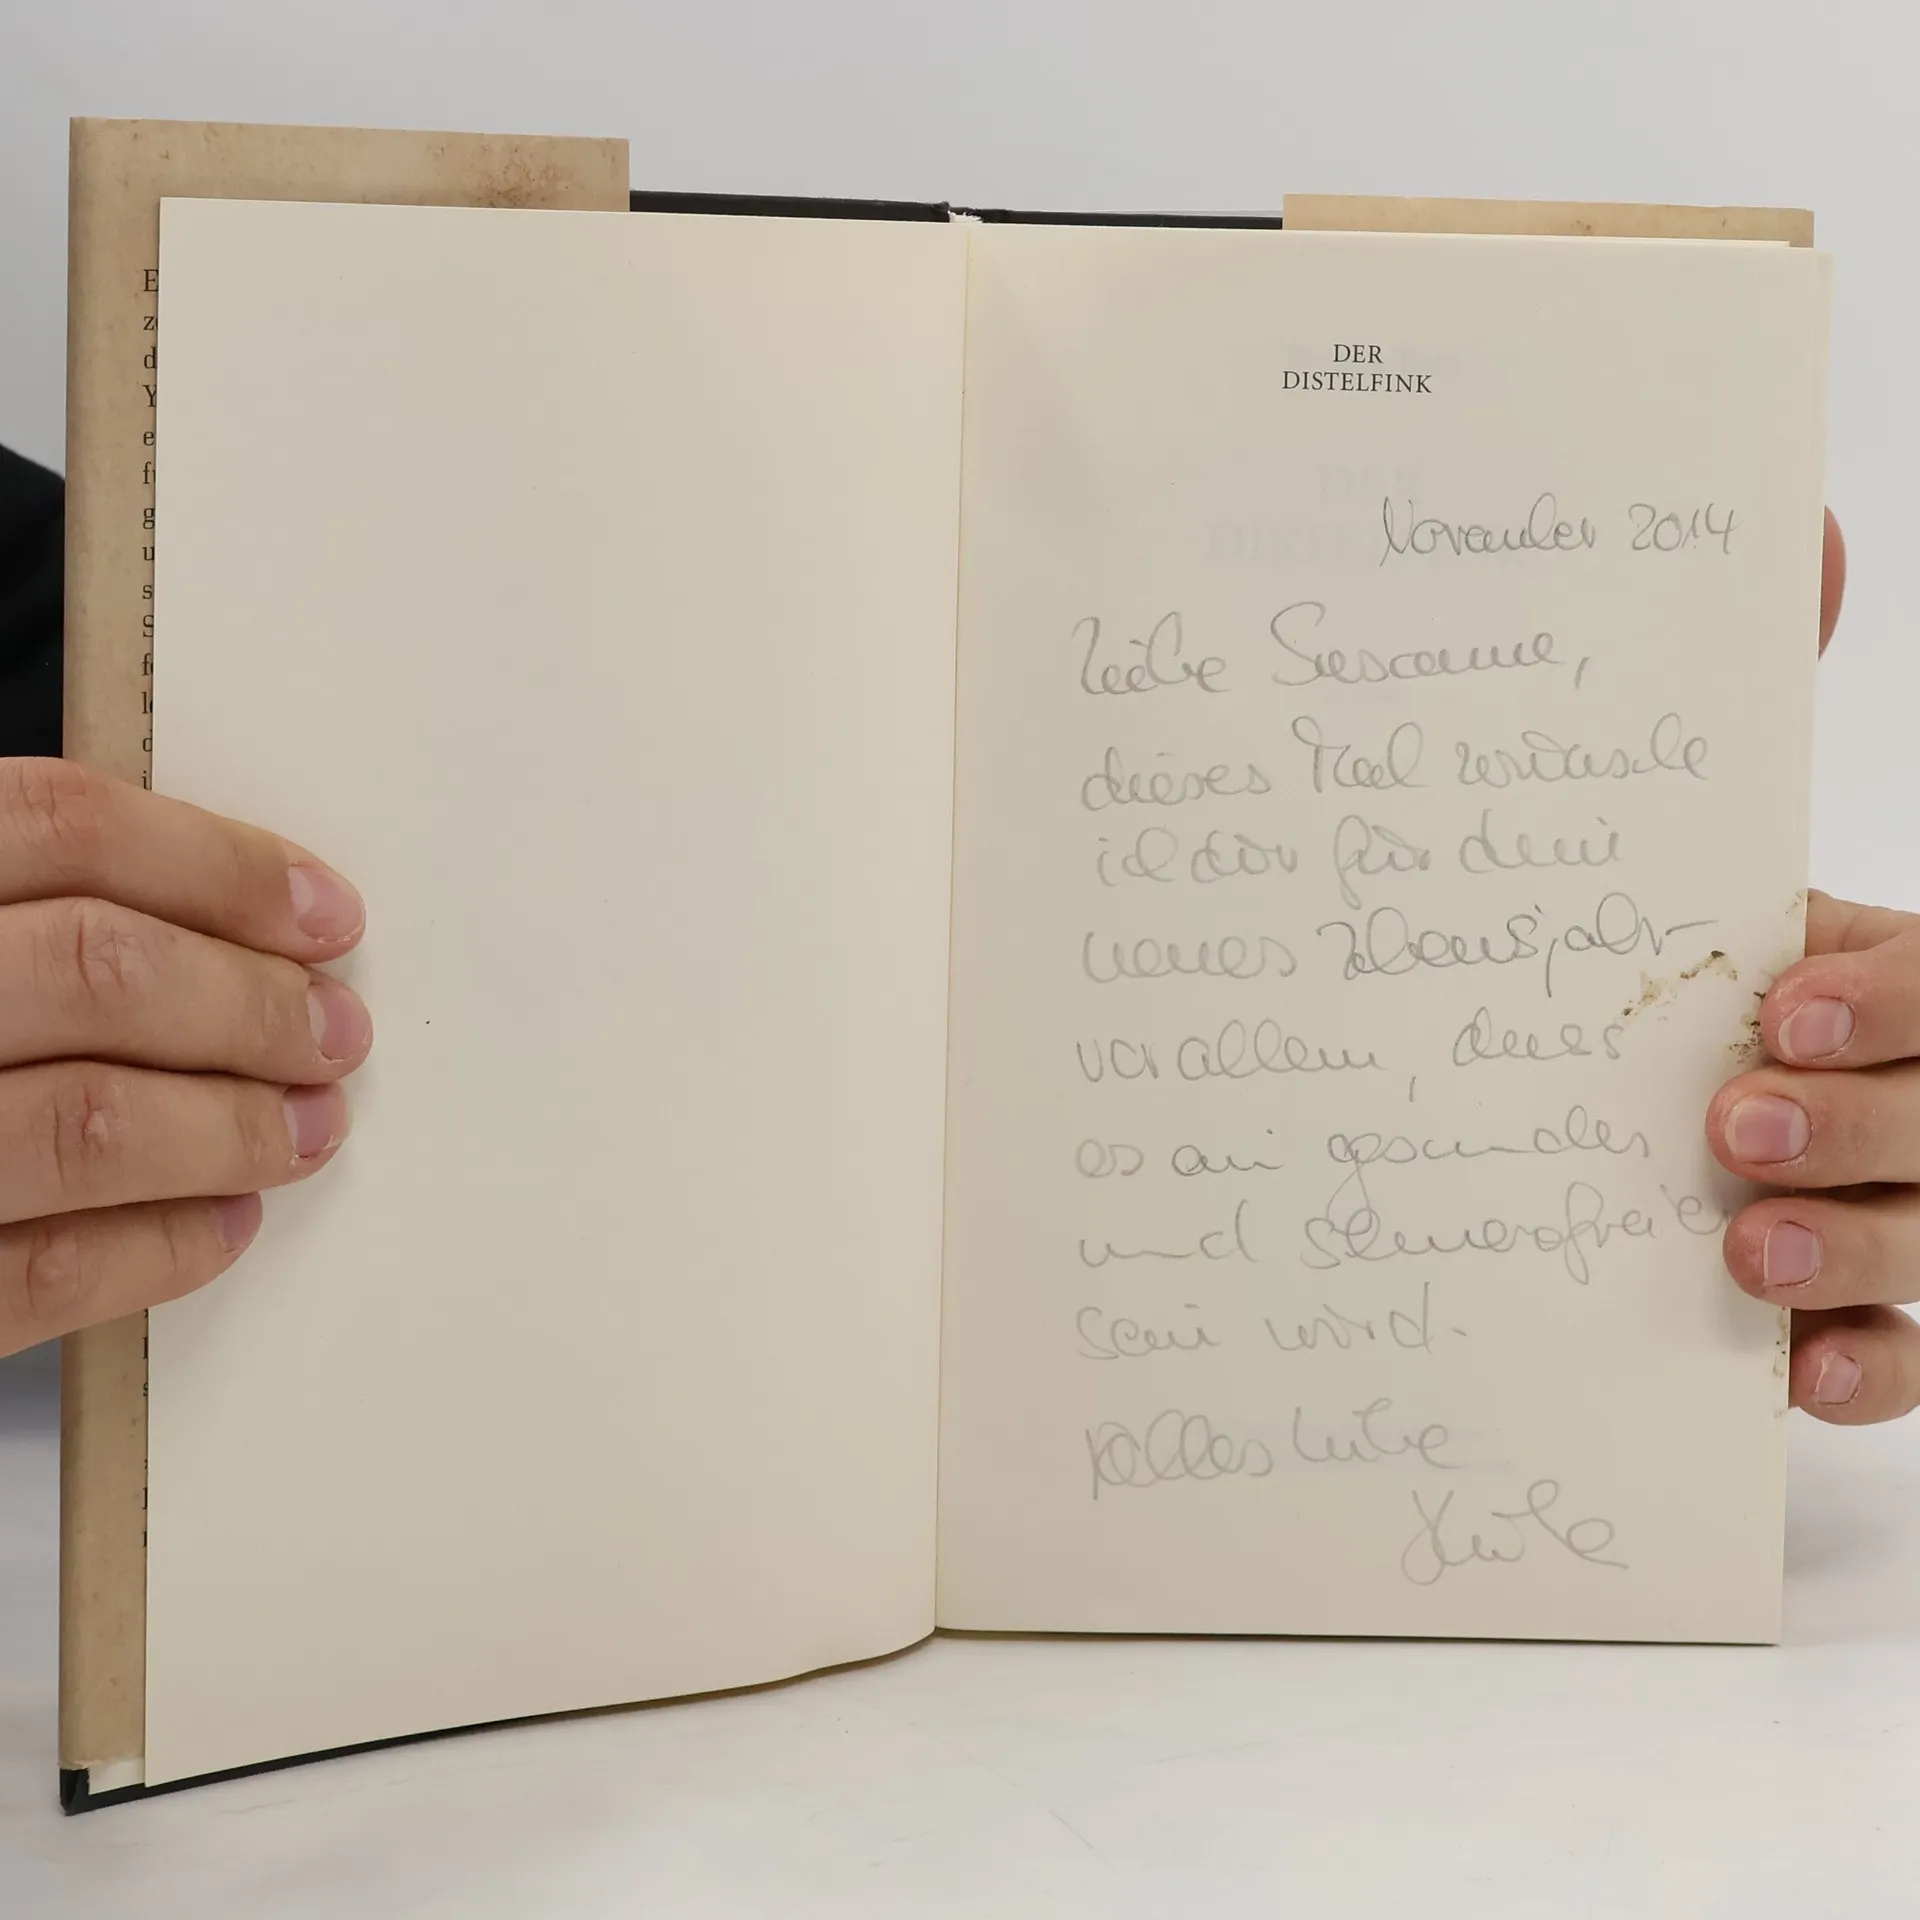 E
z
d
Y
e
f
g
u
s
S
f
l
d
i
DER
DISTELFINK
November 2014
Liebe Susanne,
dieses Mal wünsche
ich dir für dein
neues Lebensjahr
vor allem, dass
es ein gesundes
und schmerzfreies
sein wird.
Alles Liebe